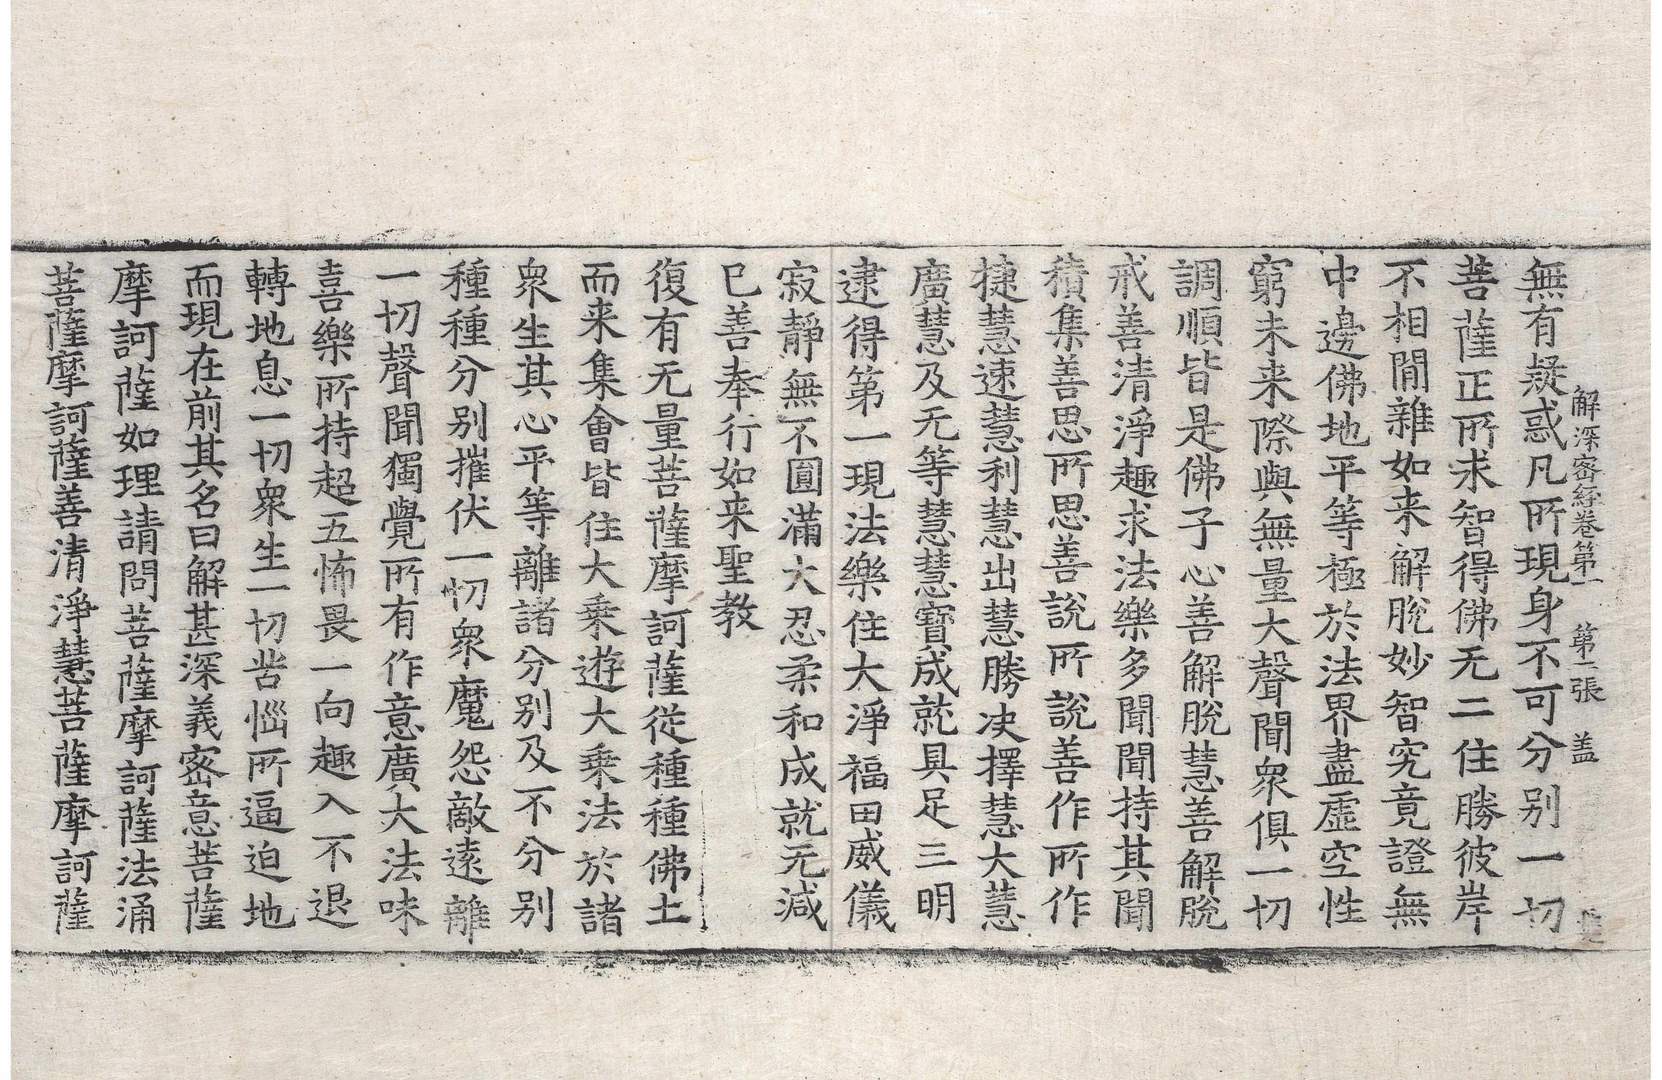 解深密經卷第一 第二張 盖
無有疑惑凡所現身不可分别一切
菩薩正所求智得佛无二住勝彼岸
不相間雜如来解脫妙智究竟證無
中邊佛地平等極於法界盡虛空性
窮未来際與無量大聲聞衆俱一切
調順皆是佛子心善解脫慧善解脫
戒善清淨趣求法樂多聞聞持其聞
積集善思所思善說所說善作所作
捷慧速慧利慧出慧勝决擇慧大慧
廣慧及无等慧慧寶成就具足三明
逮得第一現法樂住大淨福田威儀
寂靜無不圓滿大忍柔和成就无減
已善奉行如来聖教
復有无量菩薩摩訶薩從種種佛土
而来集會皆住大乗遊大乗法於諸
衆生其心平等離諸分别及不分别
種種分别摧伏一切衆魔怨敵遠離
一切聲聞獨覺所有作意廣大法味
喜樂所持超五怖畏一向趣入不退
轉地息一切衆生一切苦惱所逼迫地
而現在前其名曰解甚深義密意菩薩
摩訶薩如理請問菩薩摩訶薩法涌
菩薩摩訶薩善清淨慧菩薩摩訶薩